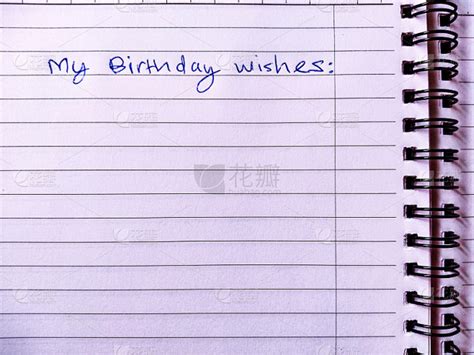 My Birthday wishes:
花瓣